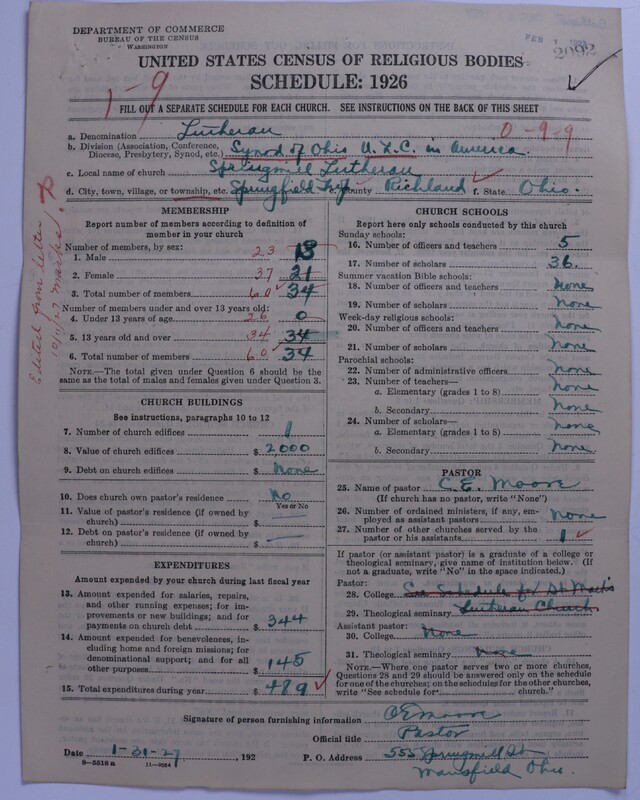 DEPARTMENT OF COMMERCE
BUREAU OF THE CENSUS
WASHINGTON
FEB 1
2092
UNITED STATES CENSUS OF RELIGIOUS BODIES
SCHEDULE: 1926
1-9
FILL OUT A SEPARATE SCHEDULE FOR EACH CHURCH. SEE INSTRUCTIONS ON THE BACK OF THIS SHEET
a. Denomination Lutheran 0-9-9
b. Division (Association, Conference, Diocese, Presbytery, Synod, etc.) Synod of Ohio U.L.C. in America.
c. Local name of church Springmill Lutheran
d. City, town, village, or township, etc. Springfield Twp County Richland f. State Ohio.
Edited from letter
MEMBERSHIP
Report number of members according to definition of
member in your church
Number of members, by sex:
1. Male 23 13
2. Female 37 21
3. Total number of members 60 34
Number of members under and over 13 years old:
4. Under 13 years of age 26 0
5. 13 years old and over 34 34
6. Total number of members 60 34
NOTE.—The total given under Question 6 should be
same as the total of males and females given under Question 3.
CHURCH BUILDINGS
See instructions, paragraphs 10 to 12
7. Number of church edifices 1
8. Value of church edifices $ 2000
9. Debt on church edifices $ None
10. Does church own pastor's residence No
Yes or No
11. Value of pastor's residence (if owned by
church) $
12. Debt on pastor's residence (if owned by
church) $
EXPENDITURES
Amount expended by your church during last fiscal year
13. Amount expended for salaries, repairs,
and other running expenses; for im-
provements or new buildings; and for
payments on church debt $ 344
14. Amount expended for benevolences, in-
cluding home and foreign missions; for
denominational support; and for all
other purposes $ 145
15. Total expenditures during year $ 489
CHURCH SCHOOLS
Report here only schools conducted by this church
Sunday schools:
16. Number of officers and teachers 5
17. Number of scholars 36.
Summer vacation Bible schools:
18. Number of officers and teachers None
19. Number of scholars None
Week-day religious schools:
20. Number of officers and teachers None
21. Number of scholars None
Parochial schools:
22. Number of administrative officers None
23. Number of teachers—
a. Elementary (grades 1 to 8) None
b. Secondary None
24. Number of scholars—
a. Elementary (grades 1 to 8) None
b. Secondary None
PASTOR
25. Name of pastor C. E. Moore
(If church has no pastor, write "None")
26. Number of ordained ministers, if any, em-
ployed as assistant pastors None
27. Number of other churches served by the
pastor or his assistants 1
If pastor (or assistant pastor) is a graduate of a college or
theological seminary, give name of institution below. (If
not a graduate, write "No" in the space indicated.)
Pastor:
28. College See Schedule for St Mark's
29. Theological seminary Lutheran Church
Assistant pastor:
30. College None
31. Theological seminary None
NOTE.—Where one pastor serves two or more churches,
Questions 28 and 29 should be answered only on the schedule
for one of the churches; on the schedules for the other churches,
write "See schedule for church."
Signature of person furnishing information C E Moore
Official title Pastor
Date 1-31-27, 192 P. O. Address 555 Springmill St
8-5518 a 11-9054
Mansfield Ohio.